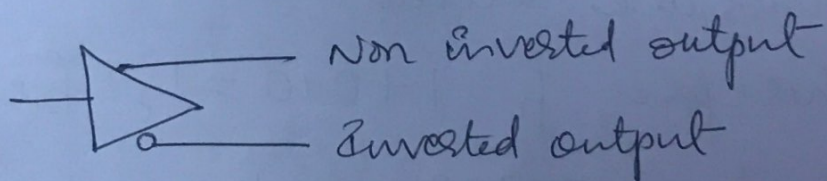 Non inverted output
Inverted output